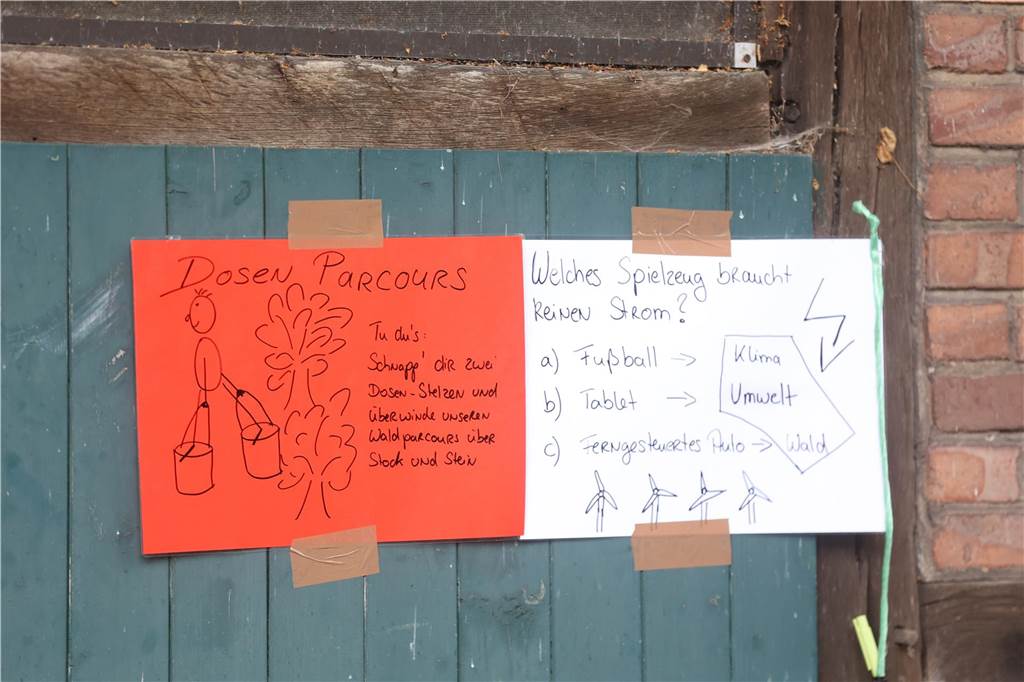 Dosen Parcours
Tu du's:
Schnapp' dir zwei
Dosen-Stelzen und
überwinde unseren
Waldparcours über
Stock und Stein
Welches Spielzeug braucht
keinen Strom?
a) Fußball → Klima
b) Tablet → Umwelt
c) Ferngesteuertes Auto → Wald